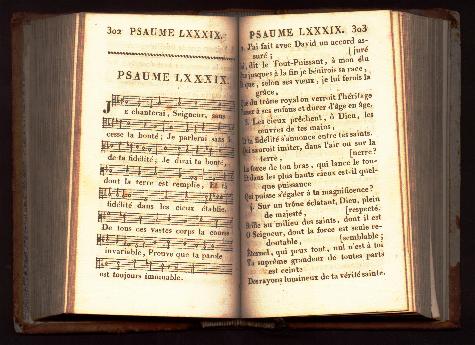 302 PSAUME LXXXIX.
PSAUME LXXXIX.
Je chanterai, Seigneur, sans
cesse ta bonté; Je parlerai sans
de ta fidélité; Je dirai ta bonté,
dont la terre est remplie, Et ta
fidélité dans les cieux établie.
De tous ces vastes corps la course
invariable, Prouve que ta parole
est toujours immuable.
PSAUME LXXXIX. 303
2. J'ai fait avec David un accord as-
suré; [juré
dit le Tout-Puissant, à mon élu
jusques à la fin je bénirois sa race,
que, selon ses vœux, je lui ferois la
grâce,
du trône royal on verroit l'héritage
à ses enfans et durer d'âge en âge.
3. Les cieux prêchent, ô Dieu, les
œuvres de tes mains,
ta fidélité s'annonce entre tes saints.
Qui sauroit imiter, dans l'air ou sur la
terre, [nerre?
La force de ton bras, qui lance le ton-
Et dans les plus hauts cieux est-il quel-
que puissance
Qui puisse s'égaler à ta magnificence?
4. Sur un trône éclatant, Dieu, plein
de majesté, [respecté.
Brille au milieu des saints, dont il est
O Seigneur, dont la force est seule re-
doutable, [semblable;
Éternel, qui peux tout, nul n'est à toi
Ta suprême grandeur de toutes parts
est ceinte
Des rayons lumineux de ta vérité sainte.